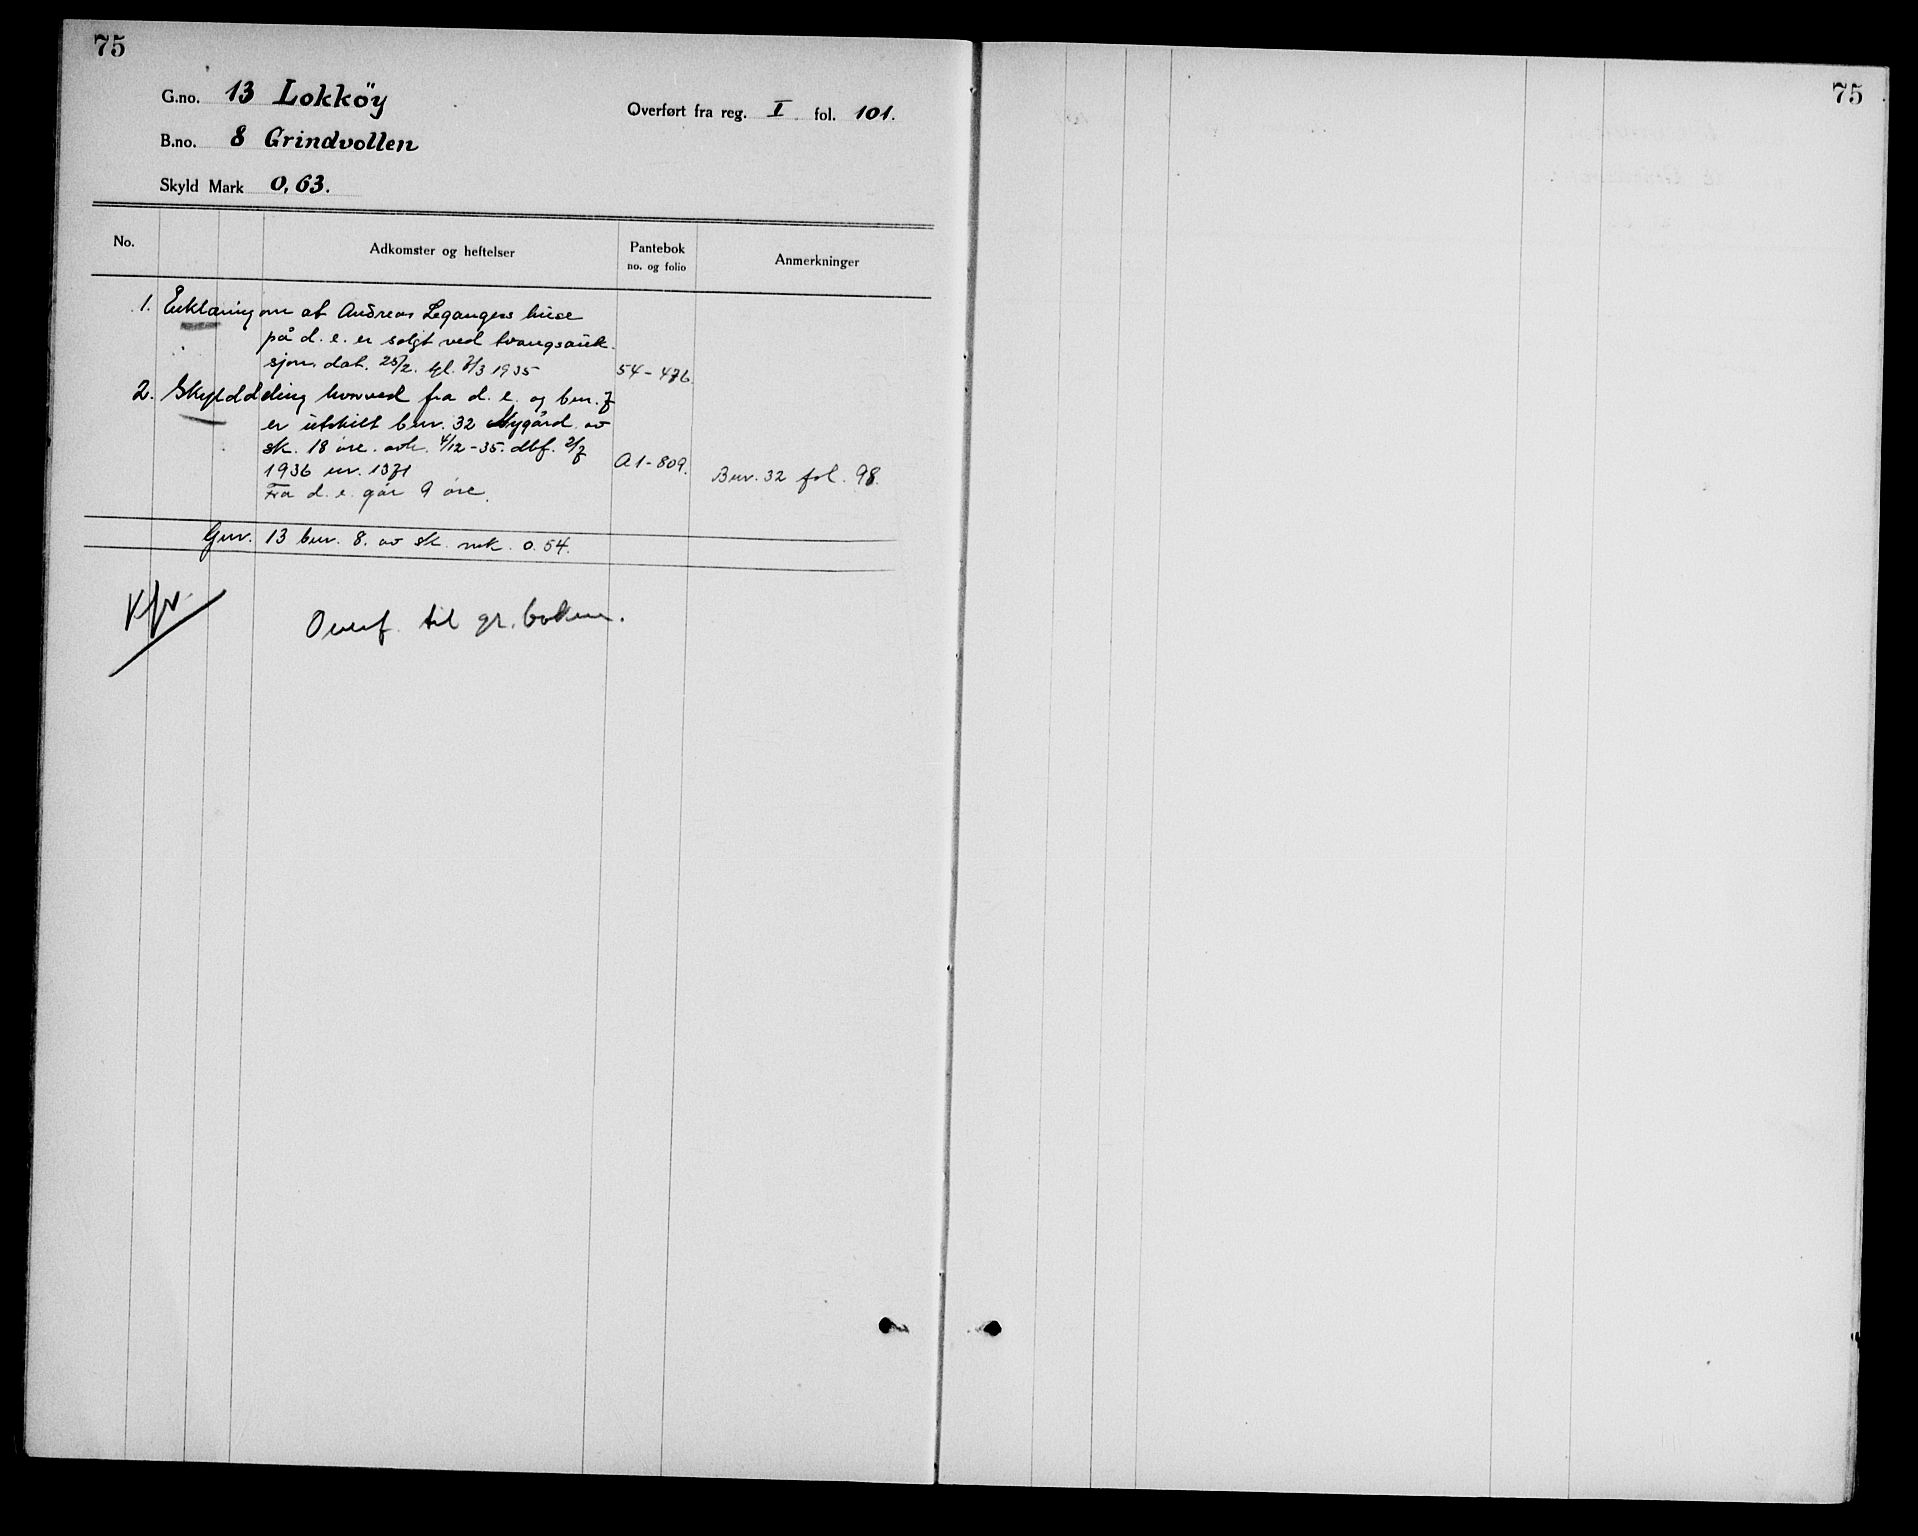 75
G.no. 13 Lokköy
Overført fra reg. I fol. 101.
B.no. 8 Grindvollen
Skyld Mark 0,63.
No. Adkomster og heftelser Pantebok no. og folio Anmerkninger
1. Erklæring om at Andreas Legangers huse
på d. e. er solgt ved tvangsauk-
sjon, dat. 25/2. tgl. 7/3 1935 54-476.
2. Skylddeling hvorved fra d. e. og bnr. 7
er utskilt bnr. 32 Nygård av
sk. 18 øre. avh. 4/12-35. dbf. 2/7
1936 nr. 1371 A1-809. Bnr. 32 fol. 98.
Fra d. e. går 9 øre.
Gnr. 13 bnr. 8. av sk. mk. 0.54.
Kfr.
Overf. til gr. boken.
75